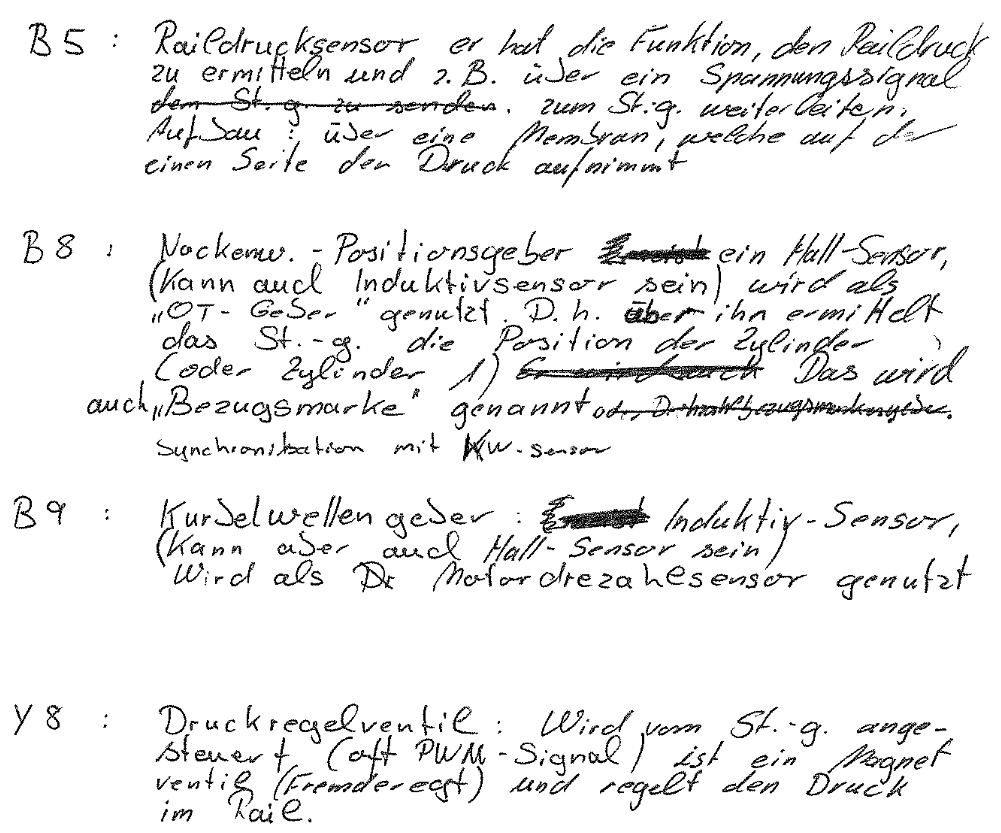 B5 : Raildrucksensor er hat die Funktion, den Raildruck
zu ermitteln und z.B. über ein Spannungssignal
dem St.g zu senden. zum St.g. weiterleiten.
Aufbau : über eine Membran, welche auf de
einen Seite den Druck aufnimmt
B8 : Nockenw.-Positionsgeber ein Hall-Sensor,
(Kann auch Induktivsensor sein) wird als
„OT-Geber" genutzt. D.h. über ihn ermittelt
das St.-g. die Position der Zylinder
(oder Zylinder 1) Er wird auch Das wird
auch „Bezugsmarke" genannt od.
Synchronisation mit KW-Sensor
B9 : Kurbelwellengeber : Induktiv-Sensor,
(Kann aber auch Hall-Sensor sein)
Wird als Dr Motordrezahlsensor genutzt
Y8 : Druckregelventil : Wird vom St.-g. ange-
steuert (oft PWM-Signal) ist ein Magnet
ventil (Fremderegt) und regelt den Druck
im Rail.